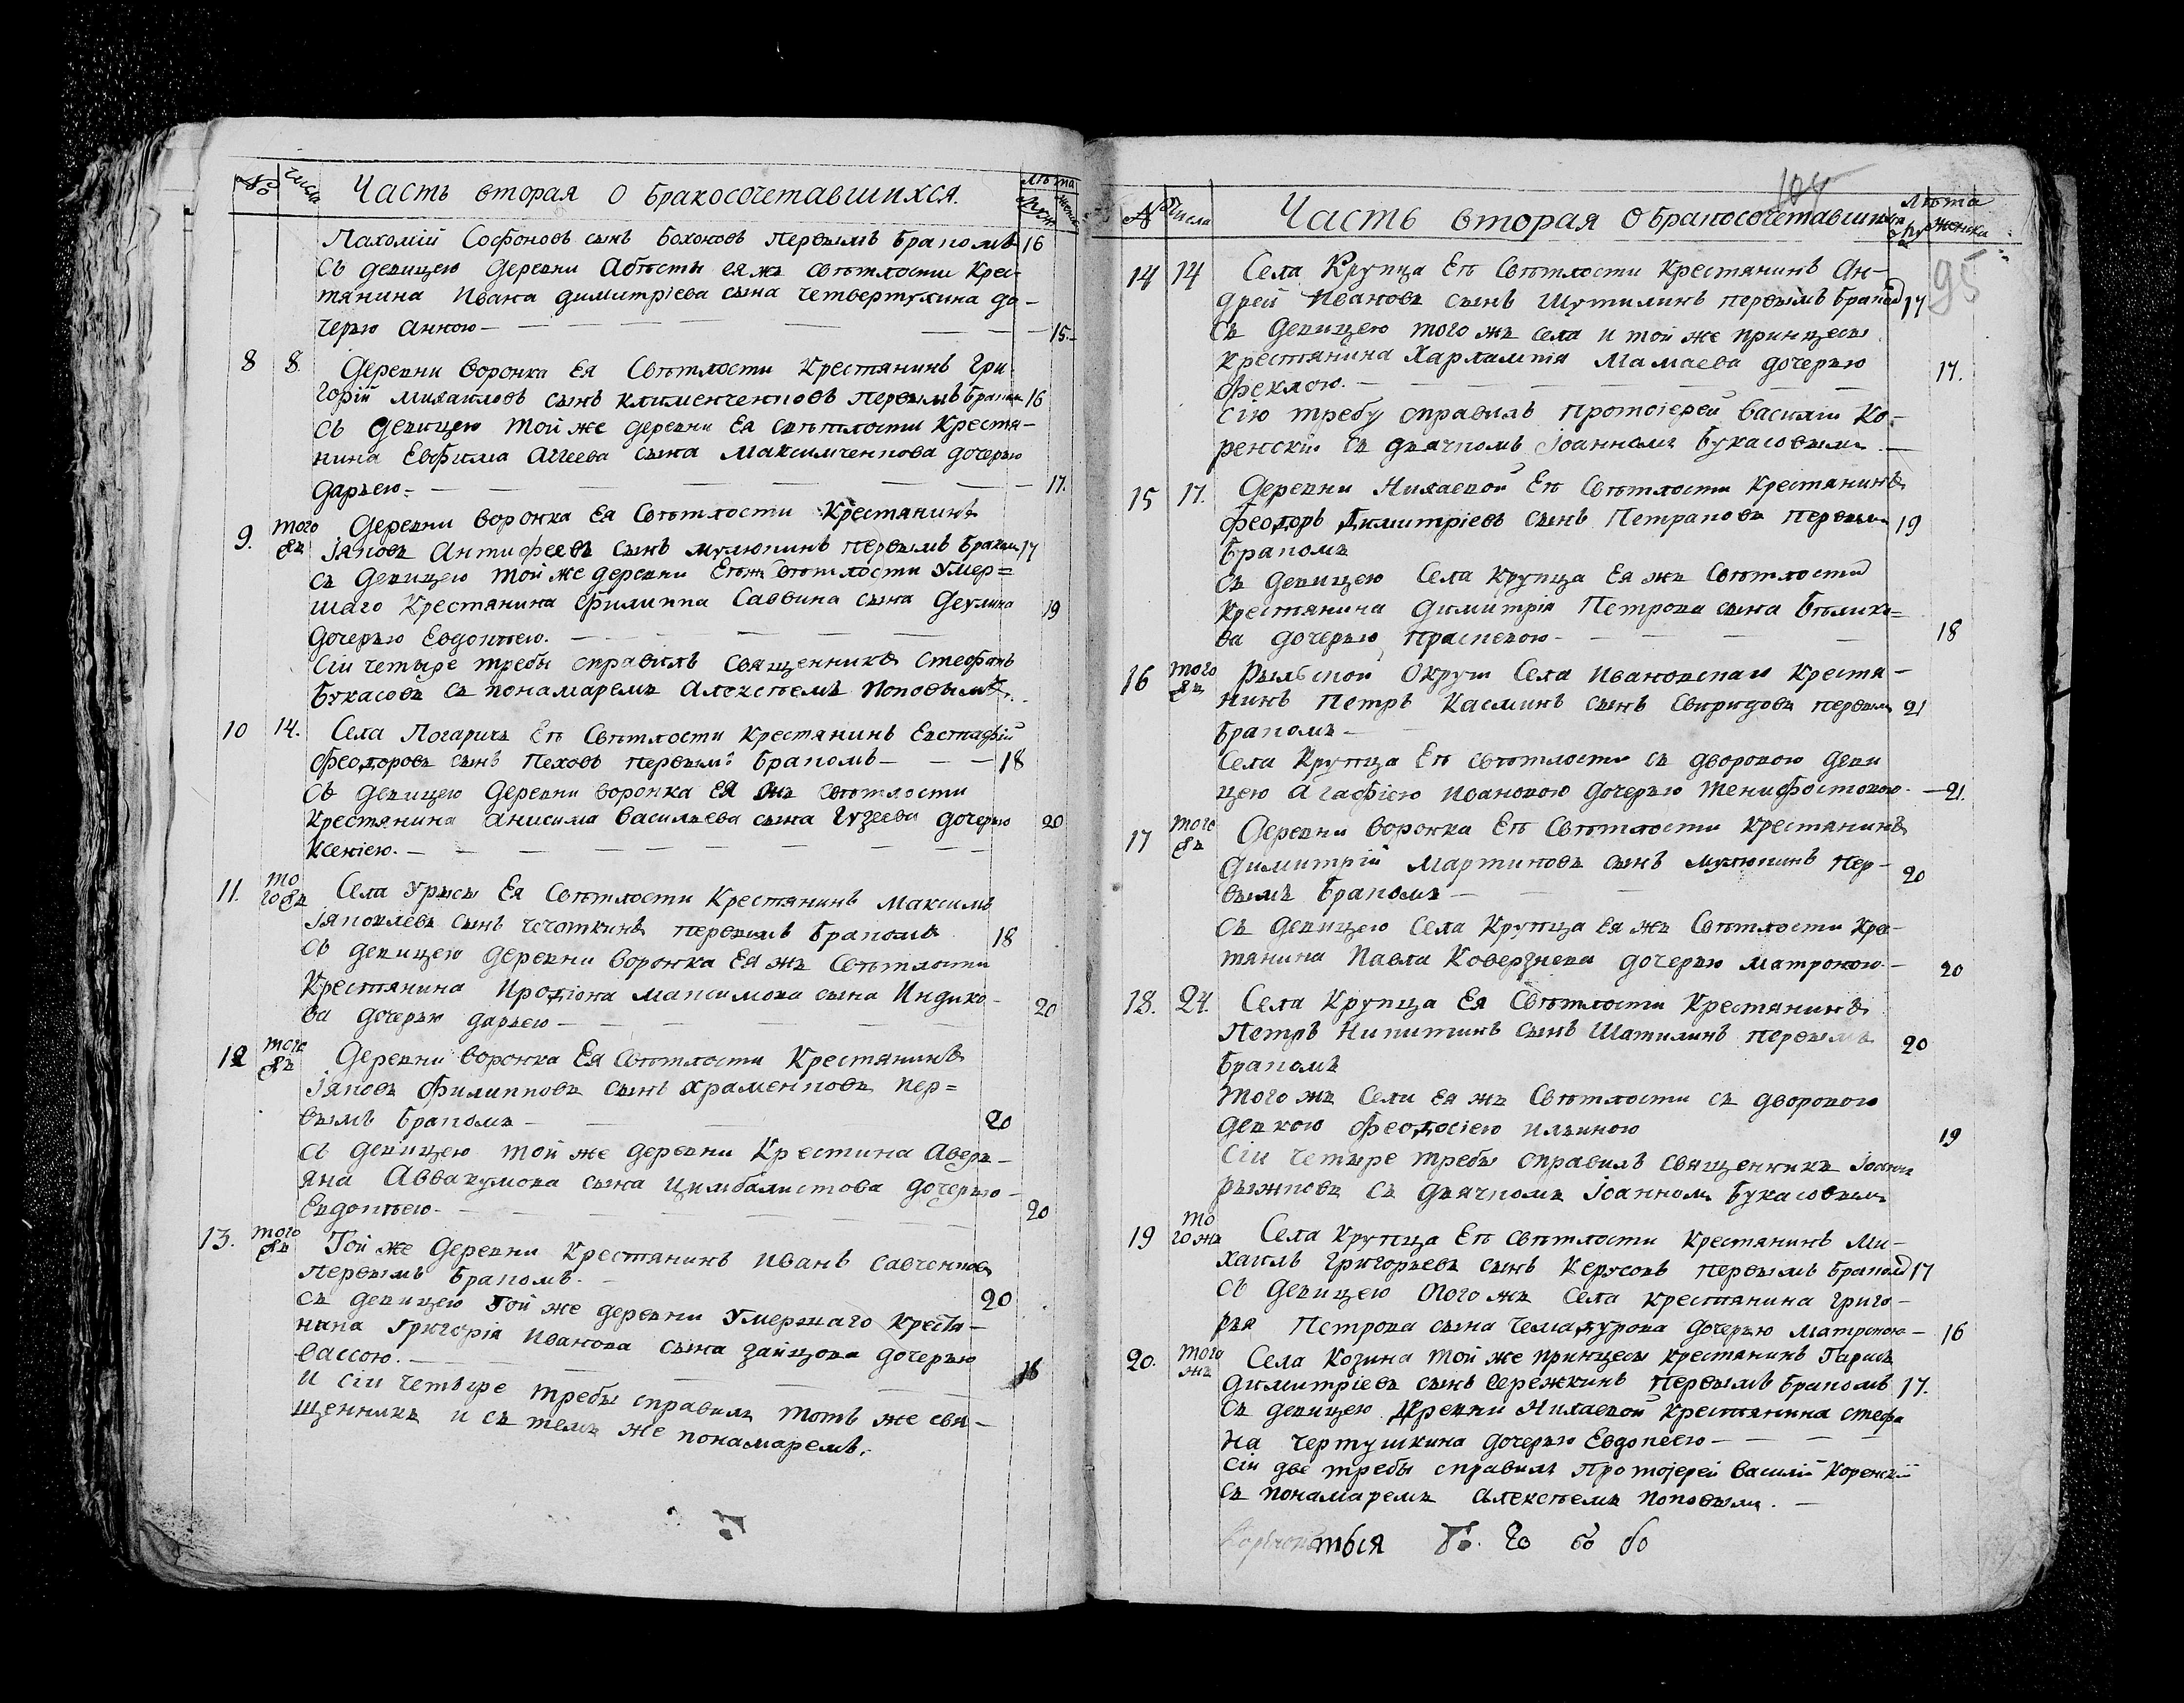 № Числа Часть вторая О Бракосочетавшихся. лѣта
Пахомій Софоновъ сынъ Бохоновъ первымъ бракомъ 16
Съ девицею деревни Абѣсты ея жъ свѣтлости крес-
тянина Ивана димитріева сына четвертухина до-
черью анною — 15.
8 8. Деревни Воронка Ея Свѣтлости Крестянинъ Гри-
горій михаиловъ сынъ клименченковъ первымъ бракомъ 16
съ девицею той же деревни Ея свѣтлости Крестя-
нина Евфима Агѣева сына Максимченкова дочерью
дарьею. — 17.
9. того жъ Деревни Воронка Ея Свѣтлости Крестянинъ
Іяковъ Антифеевъ сынъ мулюкинъ первымъ бракомъ 17
съ девицею той же деревни Еѣ жъ свѣтлости умер=
шаго Крестянина Филиппа Саввина сына Деулина 19
дочерью Евдокѣею. —
Сіи четыре требы справилъ Священникъ Стефанъ
Букасовъ съ понамаремъ Алексѣемъ Поповымъ.
10 14. Села Погарихъ Еѣ Свѣтлости Крестянинъ Евстафій
Феодоровъ сынъ Пеховъ первымъ бракомъ — 18
Съ девицею Деревни Воронка Ея жъ свѣтлости
Крестянина Анисима Васильева сына Гузеева дочерью 20
Ксеніею. —
11. то го жъ Села Урысы Ея Свѣтлости Крестянинъ Максимъ
Іяковлевъ сынъ чечоткинъ первымъ бракомъ 18
Съ девицею деревни Воронка Ея жъ Свѣтлости
Крестянина Иродіона Максимова сына Индико-
ва дочерью дарьею — 20
12 того жъ Деревни Воронка Ея Свѣтлости Крестянинъ
Іяковъ Филипповъ сынъ храменковъ пер=
вымъ бракомъ — 20
съ девицею той же деревни Крестина Аверь-
яна Аввакумова сына Цимбалистова дочерью -
Евдокѣею. — 20
13. того жъ Той же Деревни Крестянинъ Иванъ Савченковъ
первымъ бракомъ. — 20
Съ девицею той же деревни умершаго крестя-
нина Григорія Иванова сына зайцова дочерью
Вассою. — 16
И Сіи четыре требы справилъ тотъ же свя-
щенникъ и съ темъ же понамаремъ.
104
№ Числа Часть вторая О бракосочетавшихся лѣта женска
95
14 14 Села Крупца Еѣ Свѣтлости Крестянинъ Ан-
дрей Ивановъ сынъ Шутилинъ первымъ бракомъ 17
съ девицею того жъ села и той же принцесы
Крестянина Харлампія Мамаева дочерью 17.
Феклою. —
Сію требу справилъ протоіерей Василій Ко-
ренскій съ дьячкомъ Іоанномъ Букасовымъ —
15 17. Деревни Нихаевой Еѣ Свѣтлости Крестянинъ
Феодоръ Димитріевъ сынъ Петраковъ первымъ 19
бракомъ
съ девицею Села Крупца Ея жъ Свѣтлости
Крестянина Димитрія Петрова сына Бѣлико=
ва дочерью праскевою — 18
16 того жъ Рыльской Округи Села Ивановскаго Крестя-
нинъ Петръ Касминъ сынъ Свиридовъ первымъ 21
бракомъ —
Села Крупца Еѣ свѣтлости съ дворовою деви
цею Агафіею Ивановою дочерью тенифостовою. — 21.
17 того жъ Деревни Воронка Еѣ Свѣтлости Крестянинъ
Димитрій Мартиновъ сынъ мулюкинъ пер- 20
вымъ бракомъ —
съ девицею Села Крупца Ея жъ Свѣтлости Кре-
тянина Павла Коверзнева дочерью матроною. — 20
18. 24. Села Крупца Ея Свѣтлости Крестянинъ
Петръ Никитинъ сынъ Шатилинъ первымъ 20
бракомъ
того жъ Сели Ея жъ Свѣтлости съ дворовою
девкою Феодосіею Ильиною 19
Сіи четыре требы справилъ священникъ Іоаннъ
рыжковъ съ дьячкомъ Іоанномъ Букасовымъ
19 то го жъ Села Крупца Еѣ Свѣтлости Крестянинъ Ми-
хаилъ Григорьевъ сынъ Керусовъ первымъ бракомъ 17
Съ девицею того жъ Села крестянина григо-
рья Петрова сына Чемодурова дочерью матроною — 16
20. того жъ Села Козина той же принцесы крестянинъ Гарасъ
Димитріевъ сынъ Сережкинъ первымъ бракомъ 17.
Съ девицею деревни Нихаевой крестянина стефа
на чертушкина дочерью Евдокеею —
Сіи две требы справилъ Протоіерей Василій Коренскій
съ понамаремъ Алексѣемъ Поповымъ. —